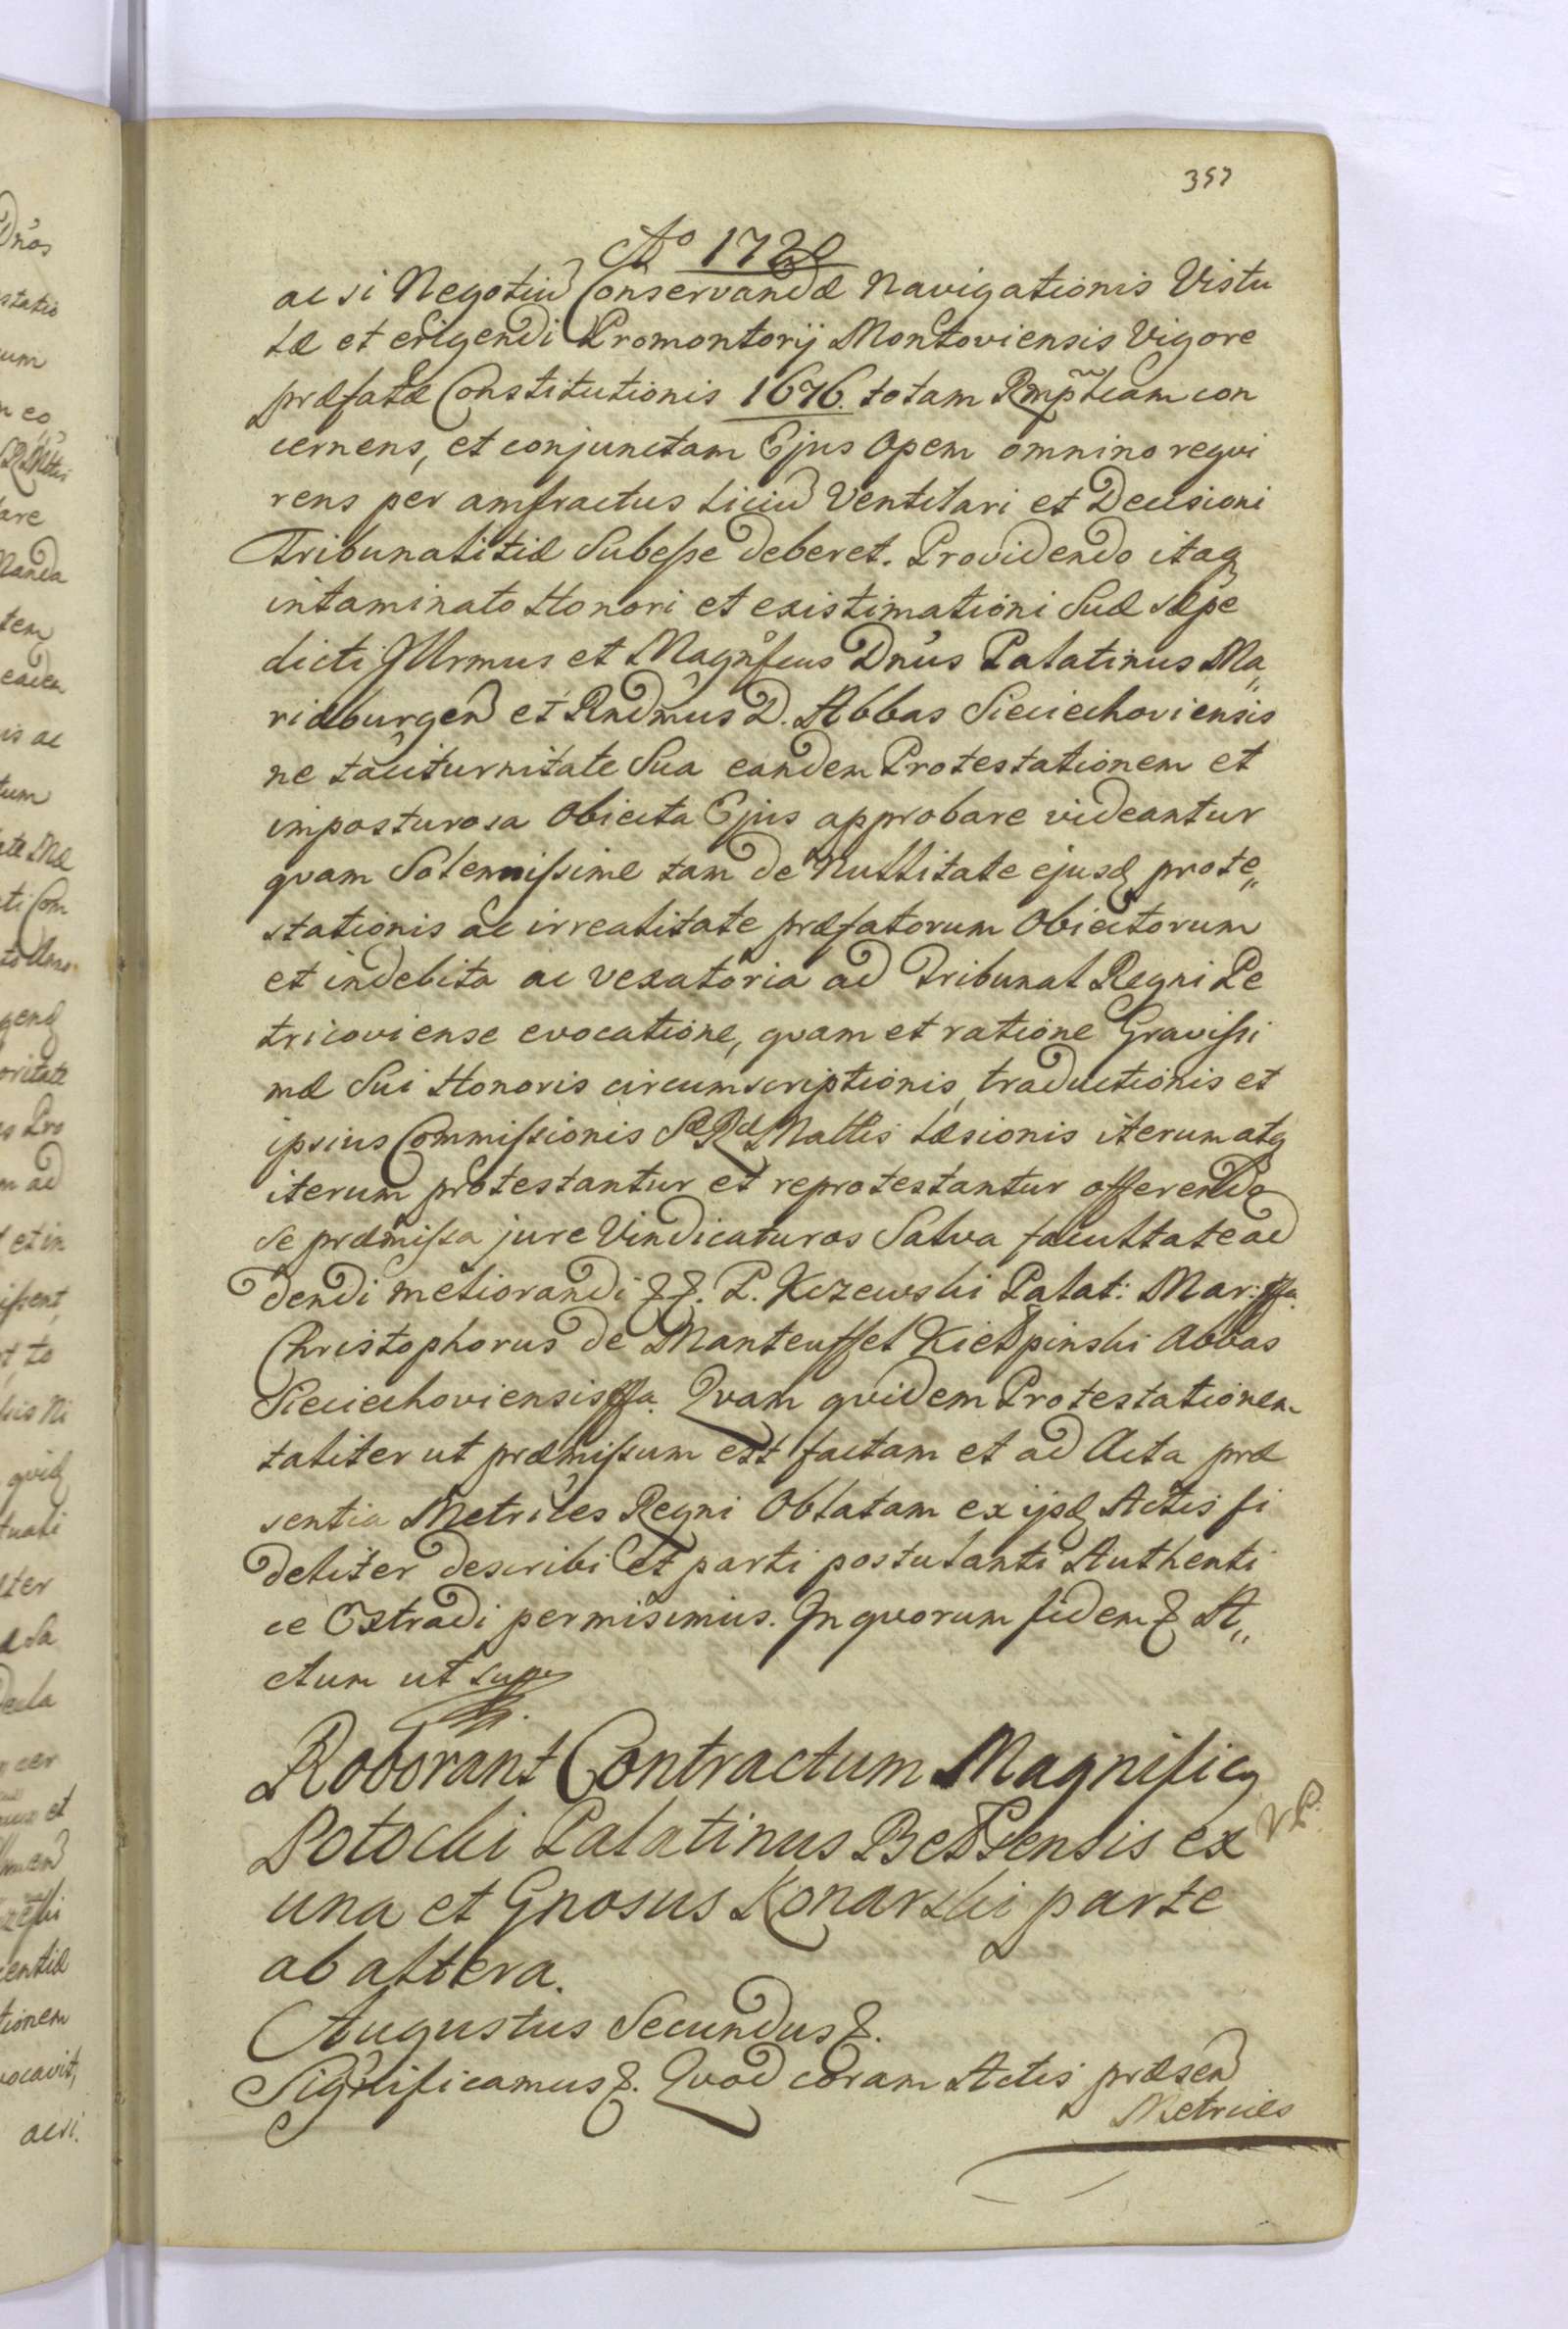 357
Aō 1720
ac si Negotiū Conservandæ Navigationis Vistu
læ et erigendi Promontorij Montoviensis Vigore
præfatæ Constitutionis 1676. totam Rmp̃lcam con
cernens, et conjunctam Ejus Opem omnino requi
rens per amfractus Liciū Ventilari et Decisioni
Tribunalitiæ Subesse deberet. Providendo itaq
intaminato Honori et existimationi Suæ sæpe
dicti Jllrmus et Magnificus Dn̄us Palatinus Ma„
riæburgen̄ et Rndm̄us D. Abbas Sieciechoviensis
ne taciturnitate Sua eandem Protestationem et
imposturosa Obiecta Ejus approbare videantur
quam Solennissime tam de Nullitate ejusd prote„
stationis ac irrealitate præfatorum Obiectorum
et indebita ac vexatoria ad Tribunal Regni Pe
tricoviense evocatione, quam et ratione Gravissi
mæ Sui Honoris circumscriptionis, traductionis et
ipsius Commissionis Sæ Ræ Mattis læsionis iterum atq
iterum protestantur et reprotestantur offerendo
se præmissa jure Vindicaturos Salva facultate ad
dendi meliorandi &&. P. Kczewski Palat: Mar: mpa.
Christophorus de Manteuffel Kiełpinski Abbas
Sieciechoviensis mpa. Quam quidem Protestationem
taliter ut præmissum est factam et ad Acta præ
sentia Metrices Regni Oblatam ex ijsd Actis fi
deliter describi et parti postulanti Authenti
ce Extradi permisimus. In quorum fidem & A„
ctum ut supra
Roborant Contractum Magnificq
Potocki Palatinus Bełzensis ex
una et Gnosus Konarski parte
ab altera.
Augustus Secundus &.
Significamus &. Quod coram Actis præsen̄
Metrices